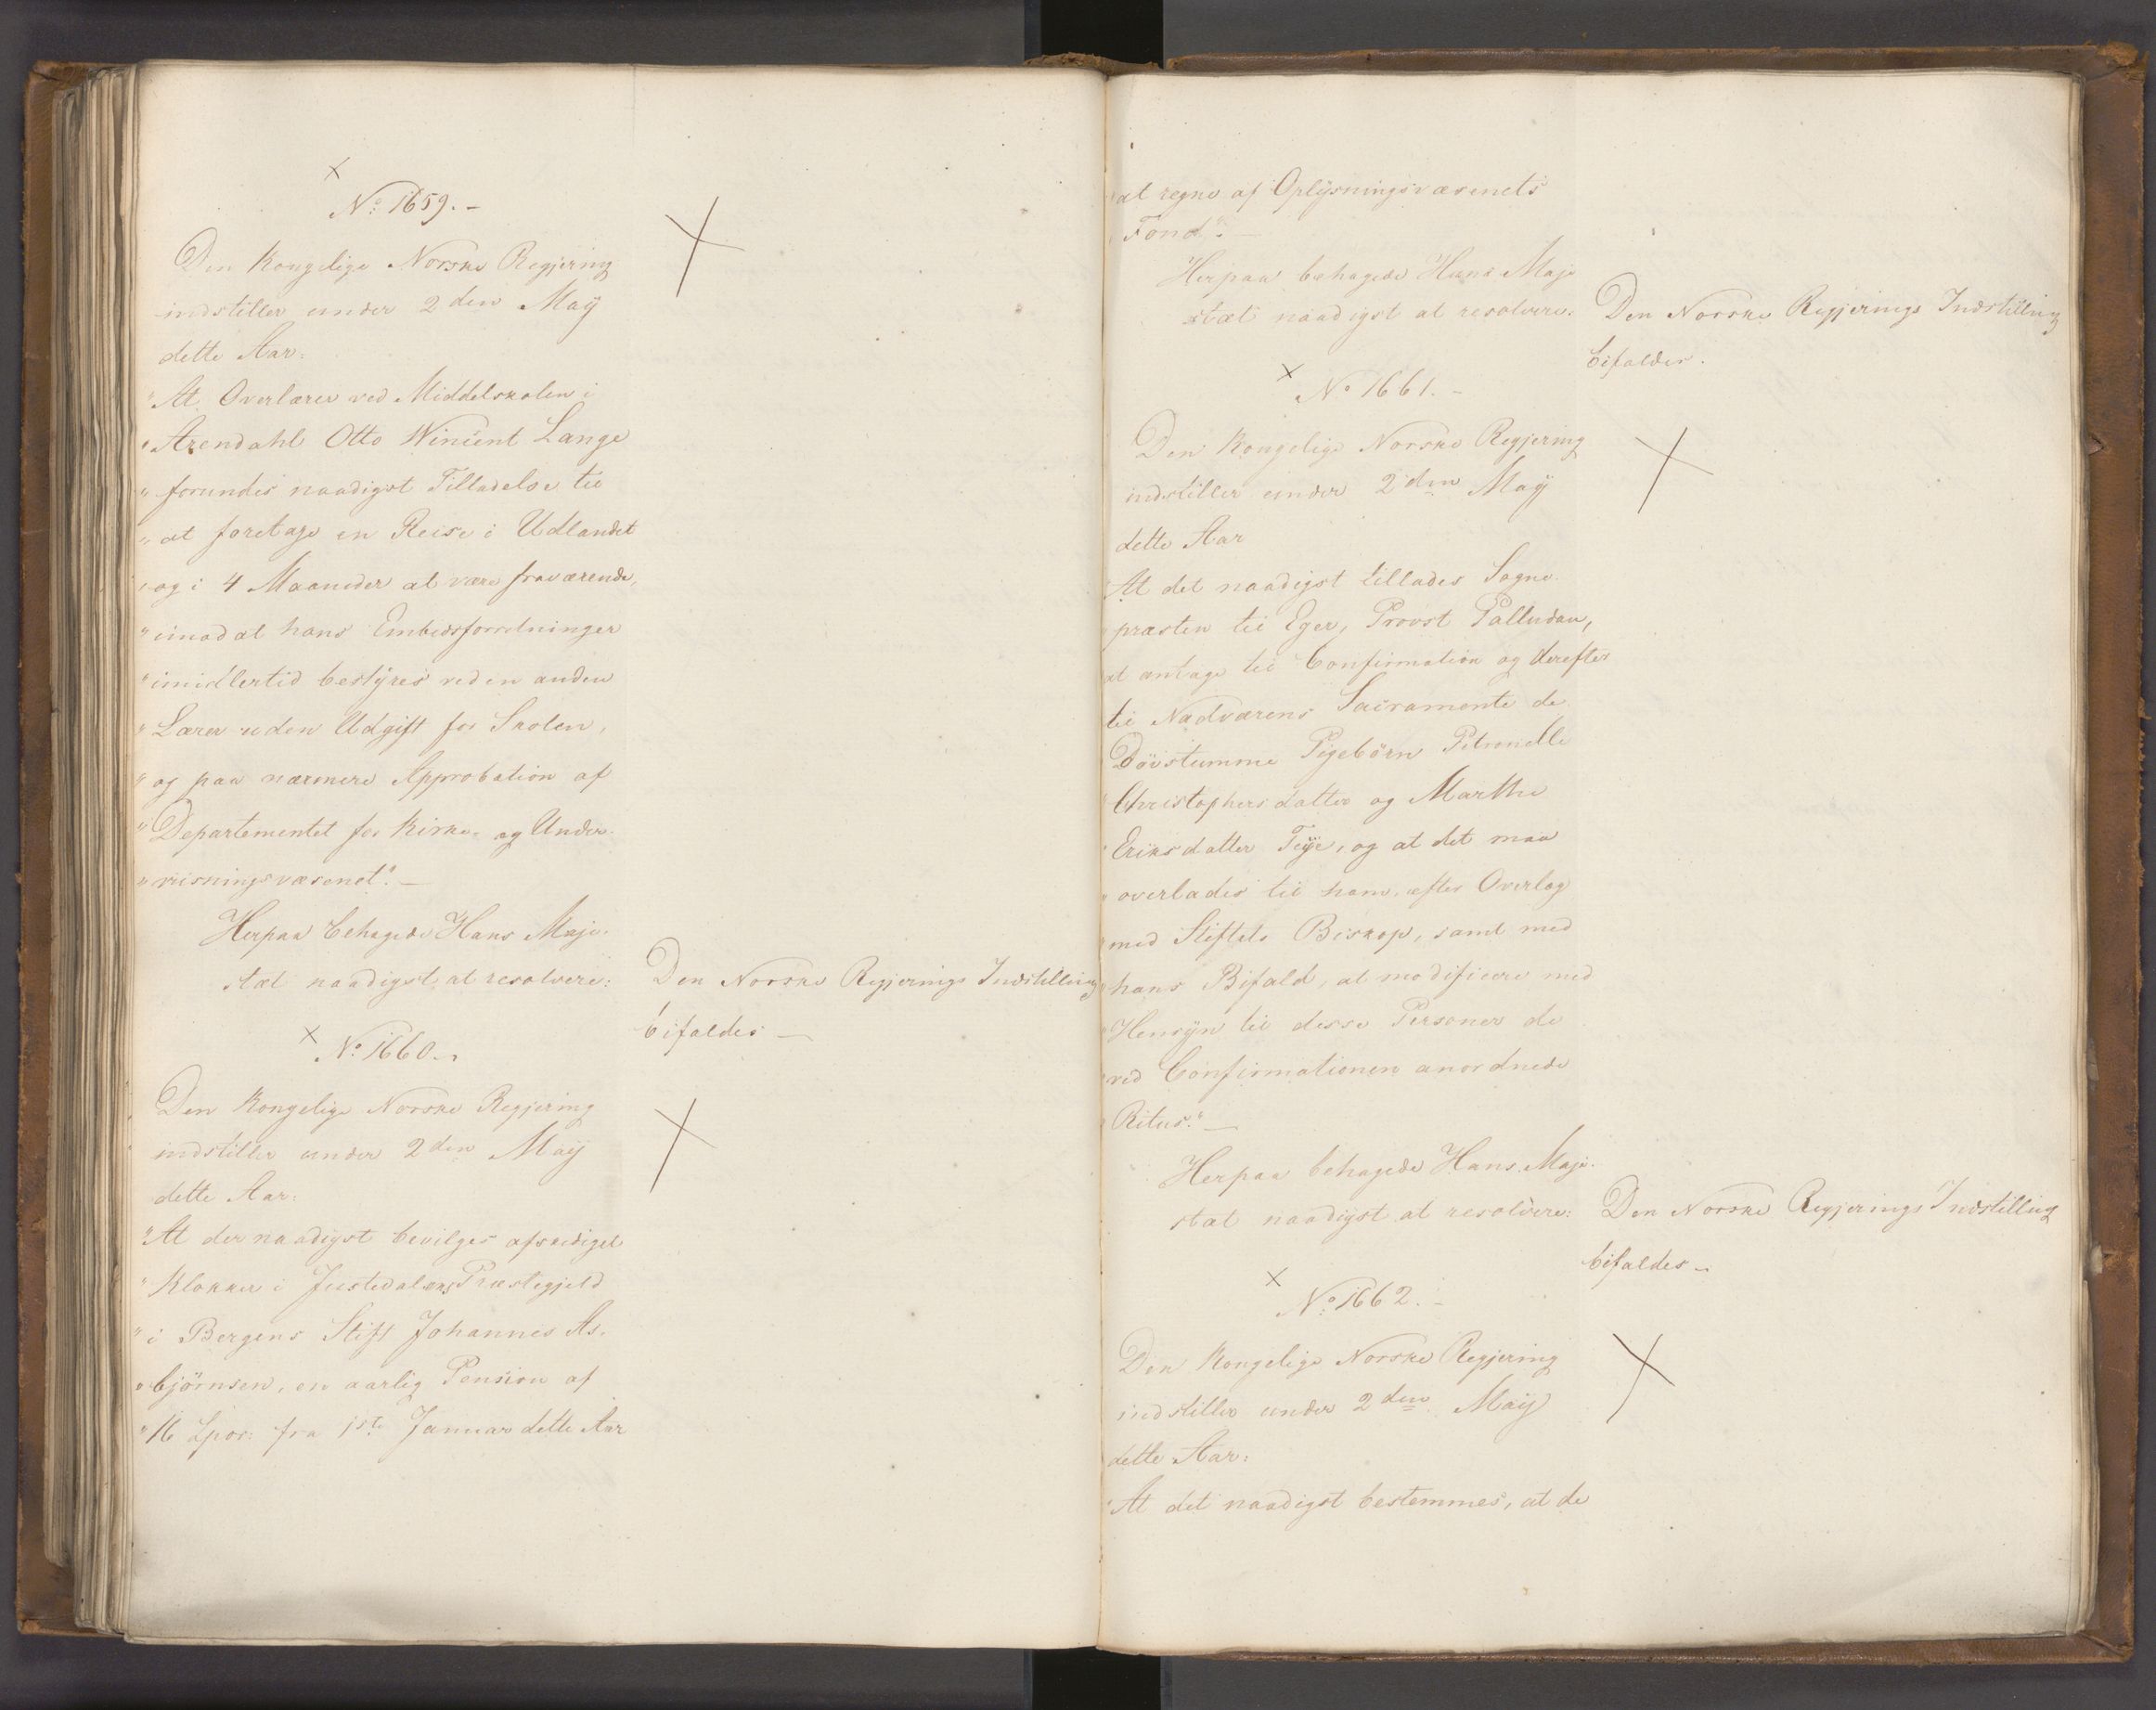 No 1659.-
Den Kongelige Norske Regjering
indstiller under 2den Maÿ
dette Aar:
"At Overlærer ved Middelskolen i
"Arendahl Otto Wincent Lange
"forundes naadigst Tilladelse til
"at foretage en Reise i Udlandet
"og i 4 Maaneder at være fraværende,
"imod at hans Embedsforretninger
"imidlertid bestÿres ved en anden
"Lærer uden Udgift for Skolen,
"og paa nærmere Approbation af
"Departementet for Kirke- og Under-
"viisningsvæsenet". —
Herpaa behagede Hans Maje-
stæt naadigst at resolvere:
Den Norske Regjerings Indstilling
bifaldes —
No 1660.-
Den Kongelige Norske Regjering
indstiller under 2den Maÿ
dette Aar:
"At der naadigst bevilges afskediget
"Klokker i Justedalens Præstegjeld
"i Bergens Stift Johannes As-
"björnsen, en aarlig Pension af
"16 Spdr: fra 1ste Januar dette Aar
"at regne af Oplÿsningsvæsenets
Fond". —
Herpaa behagede Hans Maje-
stæt naadigst at resolvere:
Den Norske Regjerings Indstilling
bifaldes.
No 1661.-
Den Kongelige Norske Regjering
indstiller under 2den Maÿ
dette Aar
"At det naadigst tillades Sogne-
"præsten til Eger, Provst Palludan,
"at antage til Confirmation og derefter
til Nadverens Sacramente de
Dövstumme Pigebörn Petronelle
"Christophersdatter og Marthe
"Eriksdatter Teÿe, og at det maa
"overlades til ham, efter Overlæg
"med Stiftets Biskop, samt med
"hans Bifald, at modificere med
"Hensÿn til disse Personer de
"ved Confirmationen anordnede
"Ritus." —
Herpaa behagede Hans Maje-
stæt naadigst at resolvere:
Den Norske Regjerings Indstilling
bifaldes -
No 1662.-
Den Kongelige Norske Regjering
indstiller under 2den Maÿ
dette Aar:
"At det naadigst bestemmes, at de